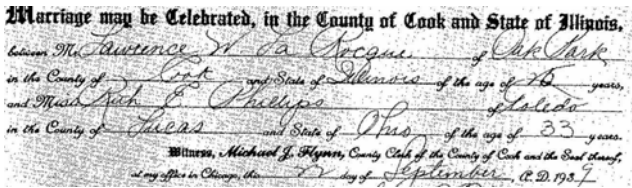 Marriage may be Celebrated, in the County of Cook and State of Illinois,
between Mr. Lawrence W. La Rocque of Oak Park
in the County of Cook and State of Illinois of the age of years,
and Miss Ruth E. Phillips of Toledo
in the County of Lucas and State of Ohio of the age of 33 years.
Witness, Michael J. Flynn, County Clerk of the County of Cook and the Seal thereof,
at my office in Chicago, this day of September, A. D. 1939